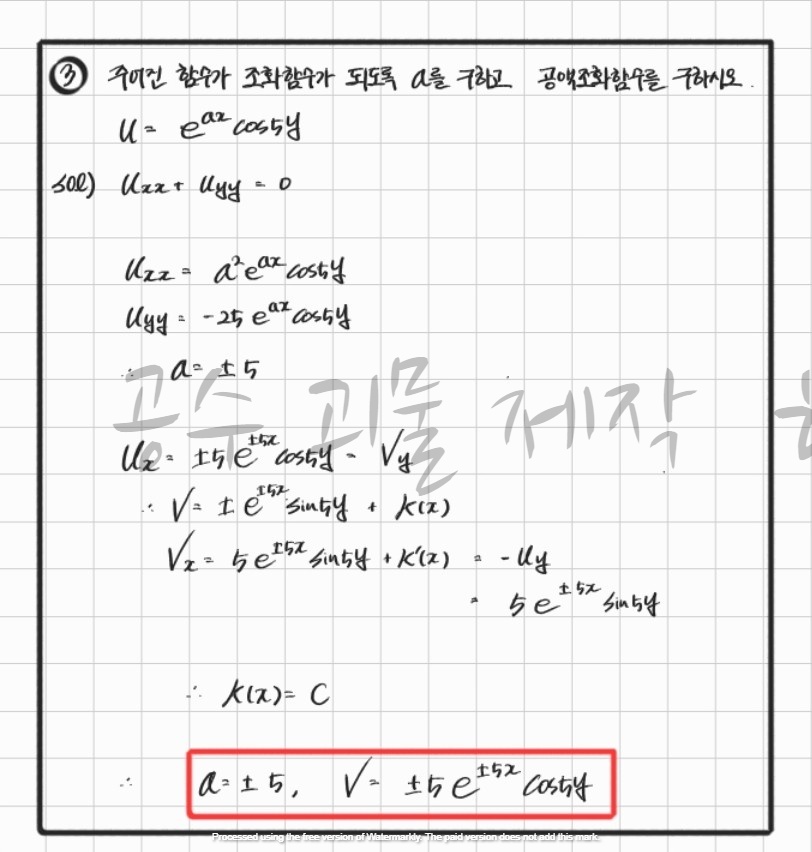 ③ 주어진 함수가 조화함수가 되도록 a를 구하고 공액조화함수를 구하시오.
U = e^{ax} cos5y
sol) Uxx + Uyy = 0
Uxx = a²e^{ax} cos5y
Uyy = -25 e^{ax} cos5y
∴ a = ±5
공수 괴물 제작
Ux = ±5e^{±5x} cos5y = Vy
∴ V = ±e^{±5x} sin5y + k(x)
Vx = 5e^{±5x} sin5y + k'(x) = -Uy
= 5e^{±5x} sin5y
∴ k(x) = C
∴ a = ±5, V = ±5e^{±5x} cos5y
Processed using the free version of Watermarkly. The paid version does not add this mark.